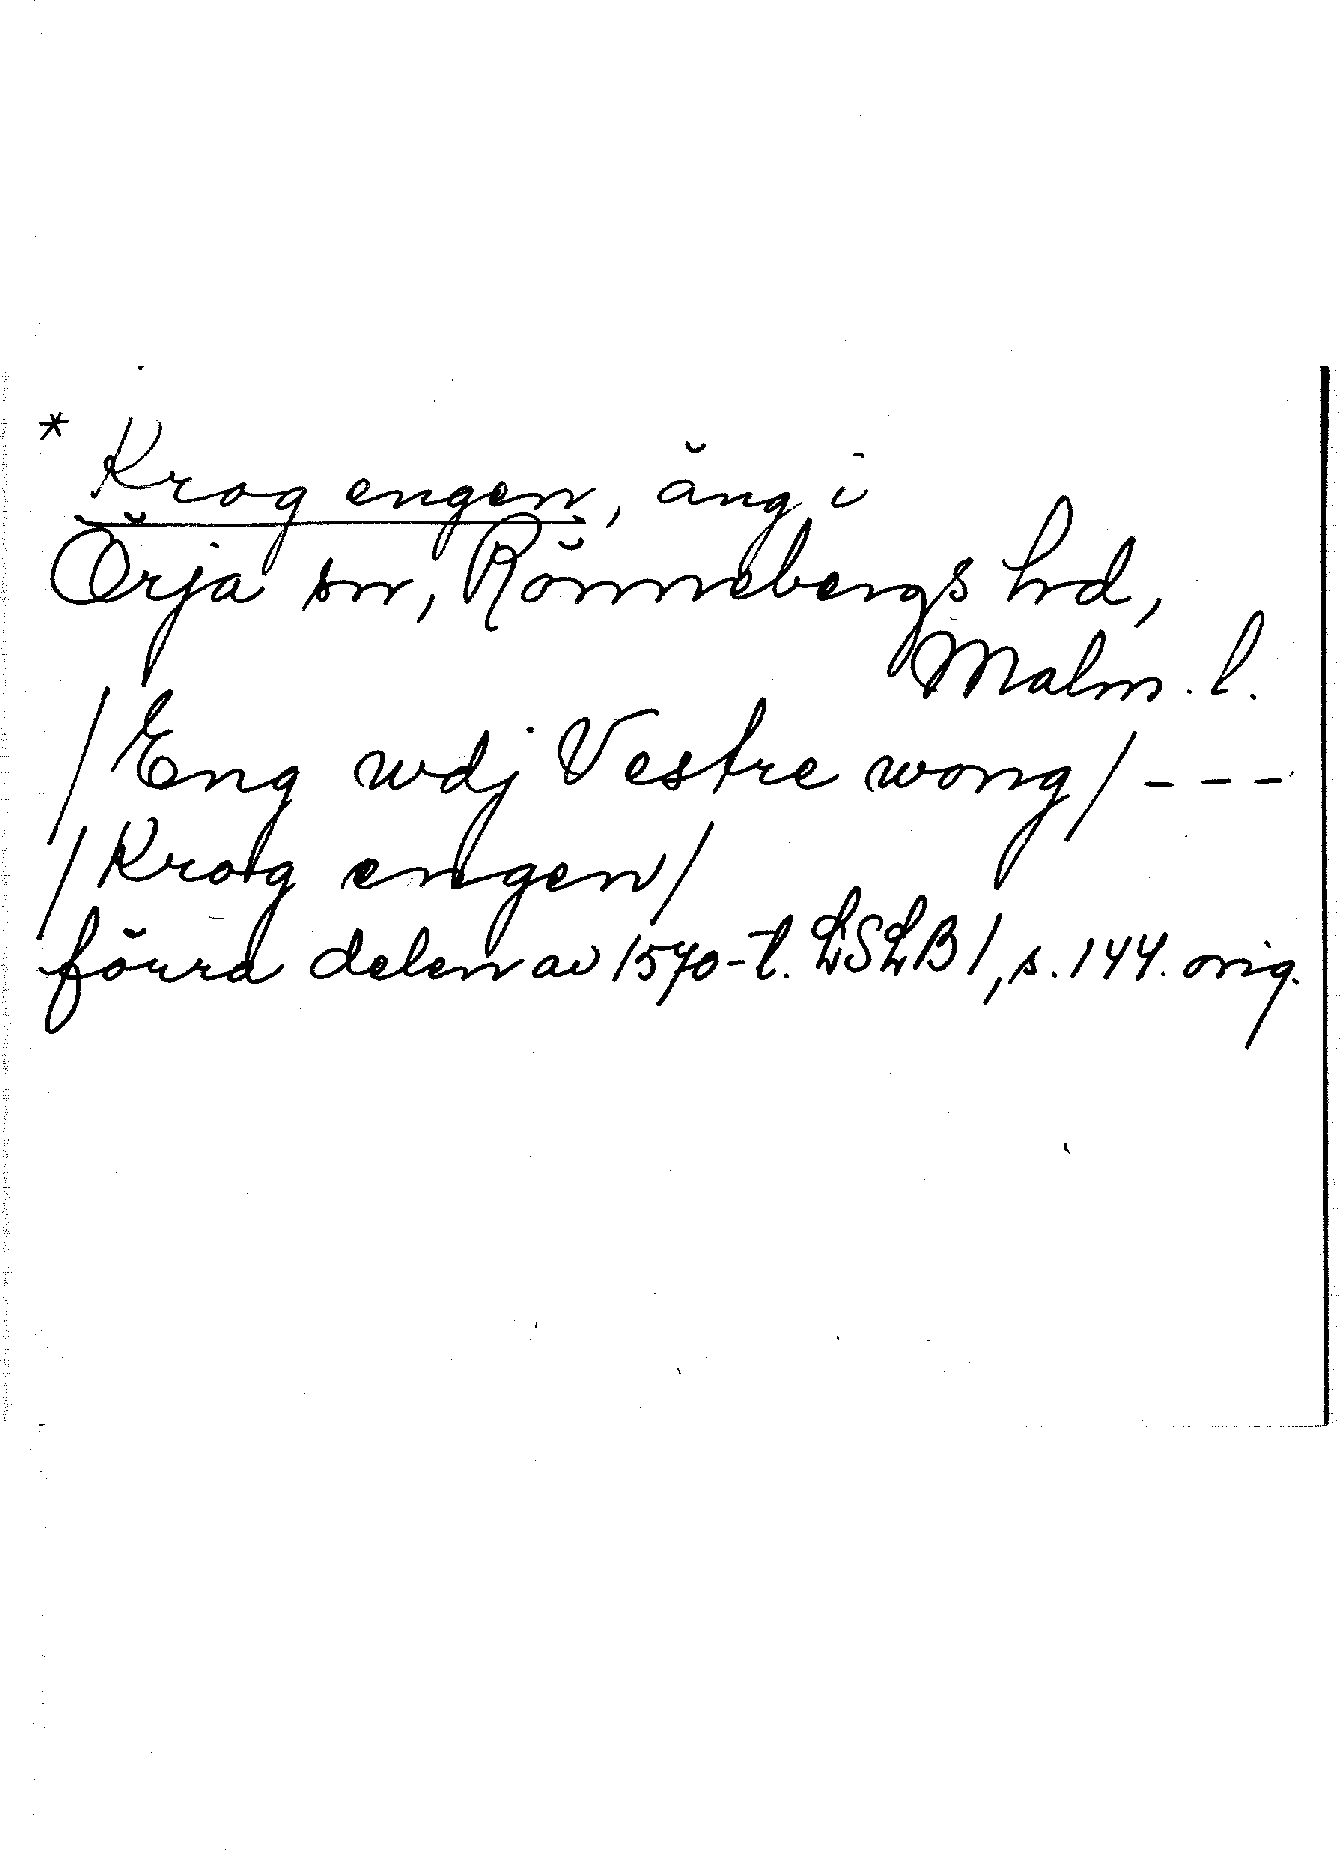 * Krog engen, äng i
Örja sn, Rönnebergs hd,
Malm. l.
/Eng wdj Vestre wong/ - - -
/Krog engen/
förra delen av 1570-t. LSLB 1, s. 144. orig.